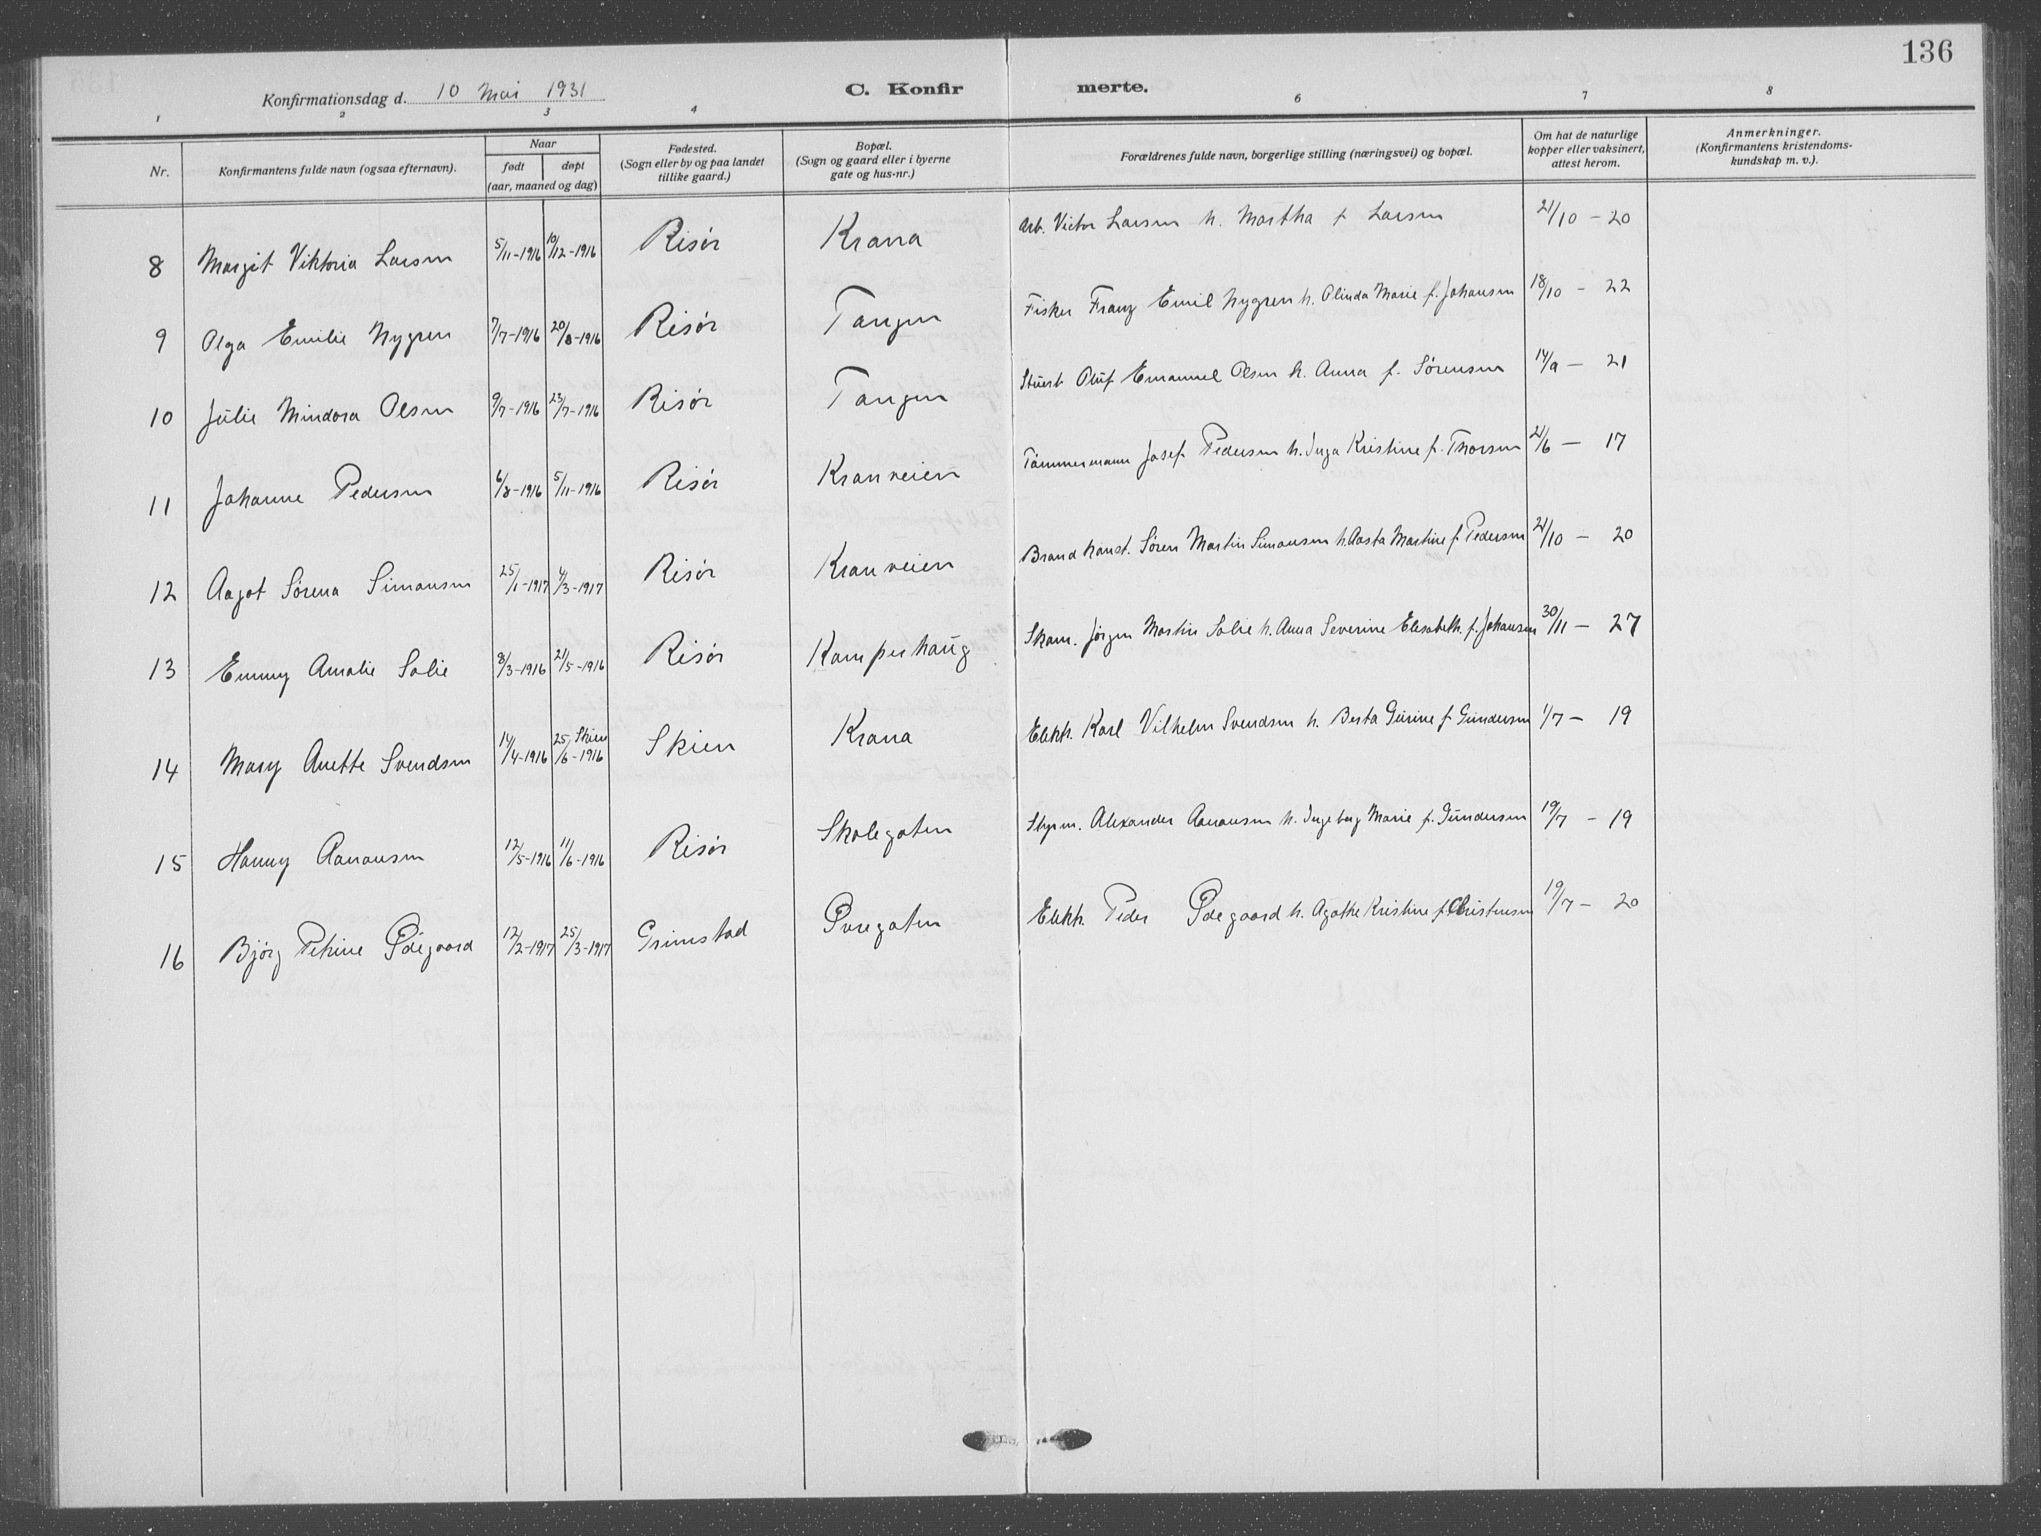 136
Konfirmationsdag d. 10 Mai 1931 C. Konfir merte.
1 2 3 4 6 7 8
Nr. Konfirmantens fulde navn (ogsaa efternavn). Naar født døpt (aar, maaned og dag) Fødested. (Sogn eller by og paa landet tillike gaard.) Bopæl. (Sogn og gaard eller i byerne gate og hus-nr.) Forældrenes fulde navn, borgerlige stilling (næringsvei) og bopæl. Om hat de naturlige kopper eller vaksinert, attest herom. Anmerkninger. (Konfirmantens kristendoms-kundskap m. v.).
8 Margit Viktoria Larsen 5/11-1916 10/12-1916 Risør Krana Arb. Victor Larsen h. Martha f. Larsen 21/10 - 20
9 Olga Emilie Nygren 7/7-1916 20/8-1916 Risør Tangen Fisker Franz Emil Nygren h. Olinda Marie f. Johansen 18/10 - 22
10 Julie Mindora Olsen 9/7-1916 23/7-1916 Risør Tangen Stuert Oluf Emanuel Olsen h. Anna f. Sørensen 14/9 - 21
11 Johanne Pedersen 6/8-1916 5/11-1916 Risør Kranveien Tømmermann Josef Pedersen h. Inga Kristine f. Thorsen 21/6 - 17
12 Aagot Sørena Simonsen 25/1-1917 4/3-1917 Risør Kranveien Brandkonst. Søren Martin Simonsen h. Aasta Martine f. Pedersen 21/10 - 20
13 Emmy Amalie Solie 8/3-1916 21/5-1916 Risør Kamperhaug Skom. Jørgen Martin Solie h. Anna Severine Elisabeth f. Johansen 30/11 - 27
14 Mary Anette Svendsen 14/4-1916 25/6-1916 Skien Skien Krana Elekk. Karl Vilhelm Svendsen h. Berta Gurine f. Gundersen 1/7 - 19
15 Hanny Aanonsen 12/5-1916 11/6-1916 Risør Skolegaten Styrm. Alexander Aanonsen h. Ingeborg Marie f. Gundersen 19/7 - 19
16 Bjørg Petrine Ødegaard 12/2-1917 25/3-1917 Grimstad Øvregaten Elekk. Peder Ødegaard h. Agathe Kristine f. Christensen 19/7 - 20